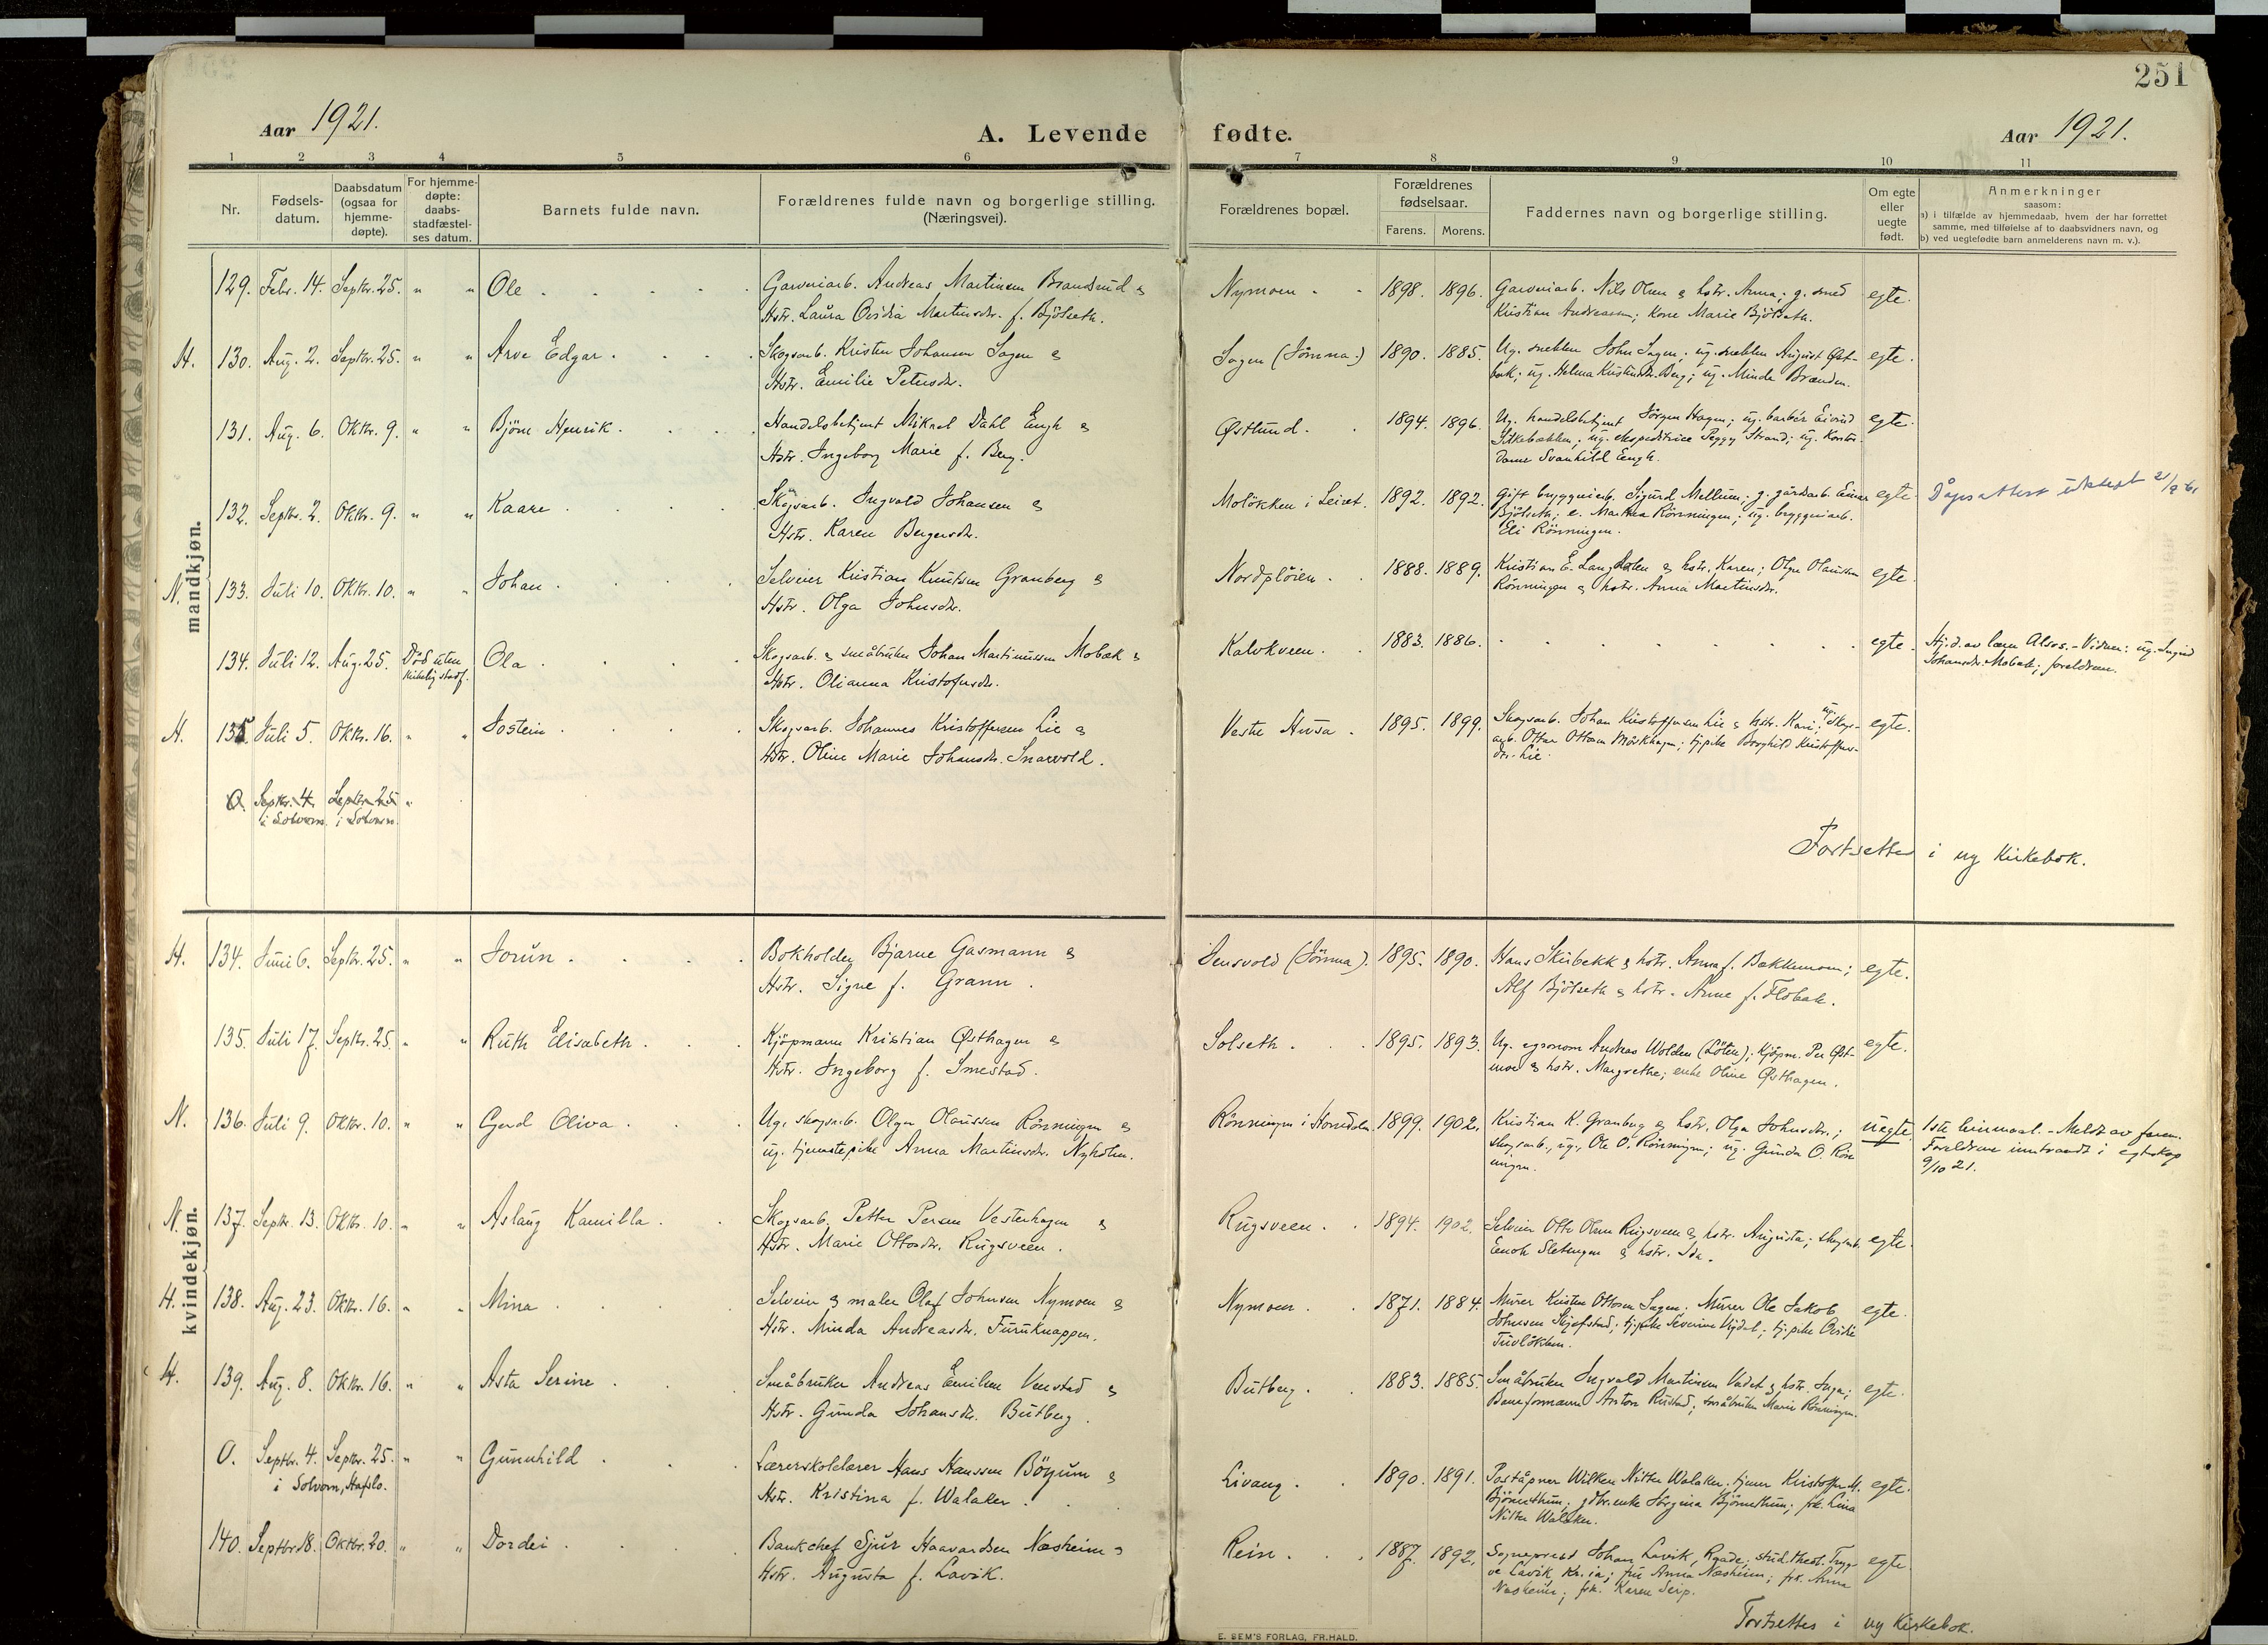 251
Aar 1921.
A. Levende fødte.
Aar 1921.
1 2 3 4 5 6 7 8 9 10 11
Nr.
Fødsels-
datum.
Daabsdatum
(ogsaa for
hjemme-
døpte).
For hjemme-
døpte:
daabs-
stadfæstel-
ses datum.
Barnets fulde navn.
Forældrenes fulde navn og borgerlige stilling.
(Næringsvei).
Forældrenes bopæl.
Forældrenes
fødselsaar.
Farens. Morens.
Faddernes navn og borgerlige stilling.
Om egte
eller
uegte
født.
Anmerkninger
saasom:
a) i tilfælde av hjemmedaab, hvem der har forrettet
samme, med tilføielse af to daabsvidners navn, og
b) ved uegtefødte barn anmelderens navn m. v.).
mandkjøn.
129. Febr. 14. Septbr. 25. " " Ole
Garveriarb. Andreas Martinsen Brandsrud &
Hstr. Laura Ovidia Martinsdr. f. Bjölseth.
Nymoen 1898. 1896.
Garveriarb. Nils Olsen & hstr. Anna; g. smed
Kristian Andreassen; kone Marie Bjölseth.
egte.
H. 130. Aug. 2. Septbr. 25. " " Arve Edgar
Skogsarb. Kristen Johansen Sagen &
Hstr. Emilie Petersdr.
Sagen (Jömna) 1890. 1885.
Ug. snekker John Sagen; ug. snekker August Øst-
bak; ug. Helma Kristiansdr. Berg; ug. Minda Brænden.
egte.
131. Aug. 6. Oktbr. 9. " " Bjöne Henrik
Handelsbetjent Mikael Dahl Engh &
Hstr. Ingeborg Marie f. Berg.
Østlund. 1894. 1896.
Ug. handelsbetjent Jörgen Hagen; ug. barbér Eivind
Silkebækken; ug. ekspeditrice Peggy Strand; ug. kontor-
dame Svanhild Engh.
egte.
132. Septbr. 2. Oktbr. 9. " " Kaare
Skogsarb. Ingvald Johansen &
Hstr. Karen Bergersdr.
Molökken i Leiret. 1892. 1892.
Gift bryggeriarb. Sigurd Mellum; g. gårdsarb. Einar
Bjölseth; e. Martha Rönningen; ug. bryggeriarb.
Eli Rönningen.
egte. Dåpsattest utstedt 21/8 61
N. 133. Juli 10. Oktbr. 10. " " Johan
Selveier Kristian Knutsen Granberg &
Hstr. Olga Johnsdr.
Nordplöien 1888. 1889.
Kristian E. Langholen & hstr. Karen; Olger Olaussen
Rönningen & hstr. Anna Martinsdr.
egte
134. Juli 12. Aug. 25. Död uten
kirkelig stadf.
Ola
Skogsarb. & småbruker Johan Martinussen Mobæk &
Hstr. Olianna Kristofersdr.
Kalvkveen 1883. 1886.
egte Hj.d. av lærer Alsos. - Vidner: ug. Ingrid
Johansdr. Mobæk; foreldrene.
H. 135. Juli 5. Oktbr. 16. " " Jostein
Skogsarb. Johannes Kristoffersen Lie &
Hstr. Oline Marie Johansdr. Snarvold.
Vestre Husa 1895. 1899.
Skogsarb. Johan Kristoffersen Lie & hstr. Kari; ug. skogs-
arb. Ottar Ottosen Mörkhagen; tj.pike Borghild Kristoffers-
dr. Lie.
egte.
O. Septbr. 4. Septbr. 25 "
i Solvorn. i Solvorn.
Fortsettes i ny kirkebok.
kvindekjøn.
H. 134. Juni 6. Septbr. 25. " " Jorun
Bokholder Bjarne Gasmann &
Hstr. Signe f. Grann.
Sensvold (Jömna). 1895. 1890.
Hans Skirbekk & hstr. Anna f. Bækkemoen;
Alf Bjölseth & hstr. Anne f. Flobak.
egte.
135. Juli 17. Septbr. 25. " " Ruth Elisabeth
Kjöpmann Kristian Østhagen &
Hstr. Ingeborg f. Smestad.
Solseth 1895. 1893.
Ug. agronom Andreas Wolden (Löten); kjöpm. Per Øst-
moe & hstr. Margrethe; enke Oline Østhagen.
egte.
N. 136. Juli 9. Oktbr. 10. " " Gerd Oliva
Ug. skogsarb. Olger Olaussen Rönningen &
ug. tjenestepike Anna Martinsdr. Nyholm.
Rönningen i Hornedalen 1899. 1902.
Kristian K. Granberg & hstr. Olga Johnsdr.;
skogsarb., ug. Ole O. Rönningen; ug. Gunda O. Rön-
ningen.
uegte 1ste leiermaal. - Meldt av faren.
Foreldrene inntraadt i egteskap
9/10 21.
N. 137. Septbr. 13. Oktbr. 10. " " Aslaug Kamilla
Skogsarb. Petter Persen Vesterhagen &
Hstr. Marie Ottosdr. Rugsveen.
Rugsveen 1894. 1902.
Selveier Otto Olsen Rugsveen & hstr. Augusta; skogsarb.
Enok Sletengen & hstr. Ida.
egte.
H. 138. Aug. 23. Oktbr. 16. " " Mina
Selveier & maler Olaf Johnsen Nymoen &
Hstr. Minda Andreasdr. Furuknappen.
Nymoen 1871. 1884.
Murer Kristen Ottosen Sagen; Murer Ole Jakob
Johnsen Skjefstad; tj.pike Severine Nydal; tj.pike Ovidie
Tuvlökken.
egte.
H. 139. Aug. 8. Oktbr. 16. " " Asta Serine
Småbruker Andreas Emilsen Venstad &
Hstr. Gunda Johansdr. Butberg.
Butberg 1883. 1885.
Småbruker Ingvald Martinsen Vadet & hstr. Inga;
Baneformann Anton Rustad; småbruker Marie Rönningen.
egte.
O. Septbr. 4. Septbr. 25. " " Gunnhild
i Solvorn, Hafslo.
Lærerskolelærer Hans Hanssen Böyum &
Hstr. Kristina f. Walaker.
Livang 1890. 1891.
Poståpner Wilken Nitter Walaker; tjener Kristoffer M.
Björnethun; gdbr.enke Jörgina Björnethun; frk. Lina
Nitter Walaker.
egte.
140. Septbr. 18. Oktbr. 20. " " Dordei
Bankchef Sjur Haavardsen Næsheim &
Hstr. Augusta f. Lavik.
Rein 1887. 1892.
Sogneprest Johan Lavik, Raade; stud. theol. Tryg-
ve Lavik, Kr.ia; fru Anna Næsheim; frk. Anna
Næsheim; frk. Karen Seip.
egte.
Fortsettes i ny kirkebok.
E. SEM'S FORLAG, FR.HALD.